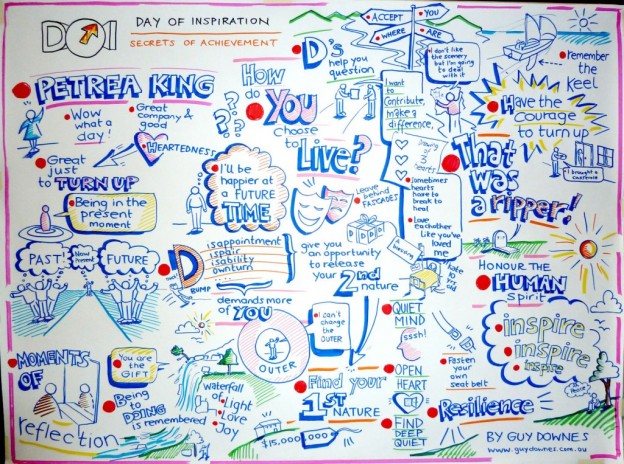 DOI
DAY OF INSPIRATION
SECRETS OF ACHIEVEMENT
PETREA KING
Wow
what a
day!
Great
company &
good
HEARTEDNESS
Great
just
to TURN UP
Being in the
present
moment
PAST!
Now
FUTURE
MOMENTS
OF
reflection
You are
the
GIFT
Being
to
DOING
is remembered
waterfall
of Light
Love
Joy
HOW
do
YOU
choose
to
Live?
???
I'll be
happier at
a FUTURE
TIME
D's
help you
question
LEAVE
behind
FACADES
D
isappointment
ispair
isability
ownturn
RUMP
give you
an opportunity
to release
your 2nd
nature
demands more
of YOU
OUTER
I can't
change
the
OUTER
Find your
1ST
NATURE
$15,000,000
ACCEPT
YOU
WHERE
ARE
I don't like
the scenery
but I'm going
to deal
with it
I want
to
contribute,
make a
difference,
Drawing
of
3
hearts
Sometimes
hearts
have to
break to
heal
Love eachother
like you've
loved
me
QUIET
MIND
sssh!
OPEN
HEART
FIND
DEEP
QUIET
Fasten
your own
seat belt
Resilience
remember
the
keel
Have the
COURAGE
to turn up
I brought a
That
was
a ripper!
HONOUR THE
HUMAN
Spirit
inspire
inspire
inspire
BY GUY DOWNES
www.guydownes.com.au